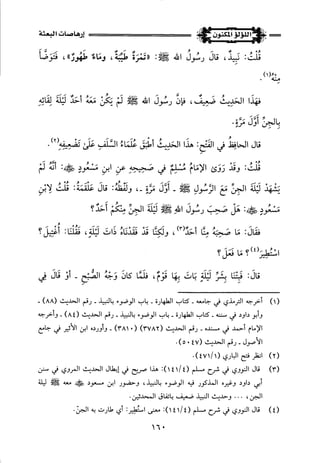 اللؤلؤ المكنون
إرهاصات البعثة
قُلْتُ: نَبِيذٌ، قَالَ رَسُولُ اللهِ ﷺ: «تَمْرَةٌ طَيِّبَةٌ، وَمَاءٌ طَهُورٌ»، فَتَوَضَّأَ
مِنْهُ(١).
فَهَذَا الحَدِيثُ ضَعِيفٌ، فَإِنَّ رَسُولَ اللهِ ﷺ لَمْ يَكُنْ مَعَهُ أَحَدٌ لَيْلَةَ لِقَائِهِ
بِالجِنِّ أَوَّلَ مَرَّةٍ.
قَالَ الحَافِظُ فِي الفَتْحِ: هَذَا الحَدِيثُ أَطْبَقَ عُلَمَاءُ السَّلَفِ عَلَىٰ تَضْعِيفِهِ(٢).
قُلْتُ: وَقَدْ رَوَىٰ الإِمَامُ مُسْلِمٌ فِي صَحِيحِهِ عَنِ ابنِ مَسْعُودٍ ﷺ: أَنَّهُ لَمْ
يَشْهَدْ لَيْلَةَ الجِنِّ مَعَ الرَّسُولِ ﷺ - أَوَّلَ مَرَّةٍ -، وَلَفْظُهُ: قَالَ عَلْقَمَةُ: قُلْتُ لِابْنِ
مَسْعُودٍ ﷺ: هَلْ صَحِبَ رَسُولَ اللهِ ﷺ لَيْلَةَ الجِنِّ مِنْكُمْ أَحَدٌ؟
فَقَالَ: مَا صَحِبَهُ مِنَّا أَحَدٌ(٣)، وَلَكِنَّا قَدْ فَقَدْنَاهُ ذَاتَ لَيْلَةٍ، فَقُلْنَا: أُغْتِيلَ؟
اسْتُطِيرَ(٤)؟ مَا فَعَلَ؟
قَالَ: فَبِتْنَا بِشَرِّ لَيْلَةٍ بَاتَ بِهَا قَوْمٌ، فَلَمَّا كَانَ وَجْهُ الصُّبْحِ - أَوْ قَالَ فِي
(١) أخرجه الترمذي في جامعه - كتاب الطهارة - باب الوضوء بالنبيذ - رقم الحديث (٨٨) -
وأبو داود في سننه - كتاب الطهارة - باب الوضوء بالنبيذ - رقم الحديث (٨٤) - وأخرجه
الإمام أحمد في مسنده - رقم الحديث (٣٧٨٢) (٣٨١٠) - وأورده ابن الأثير في جامع
الأصول - رقم الحديث (٥٠٤٧).
(٢) انظر فتح الباري (٤٧١/١).
(٣) قال النووي في شرح مسلم (١٤١/٤): هذا صريح في إبطال الحديث المروي في سنن
أبي داود وغيره المذكور فيه الوضوء بالنبيذ، وحضور ابن مسعود ﷺ معه ﷺ ليلة
الجن، ... وحديث النبيذ ضعيف باتفاق المحدثين.
(٤) قال النووي في شرح مسلم (١٤١/٤): معنى استُطير: أي طارت به الجن.
١٦٠